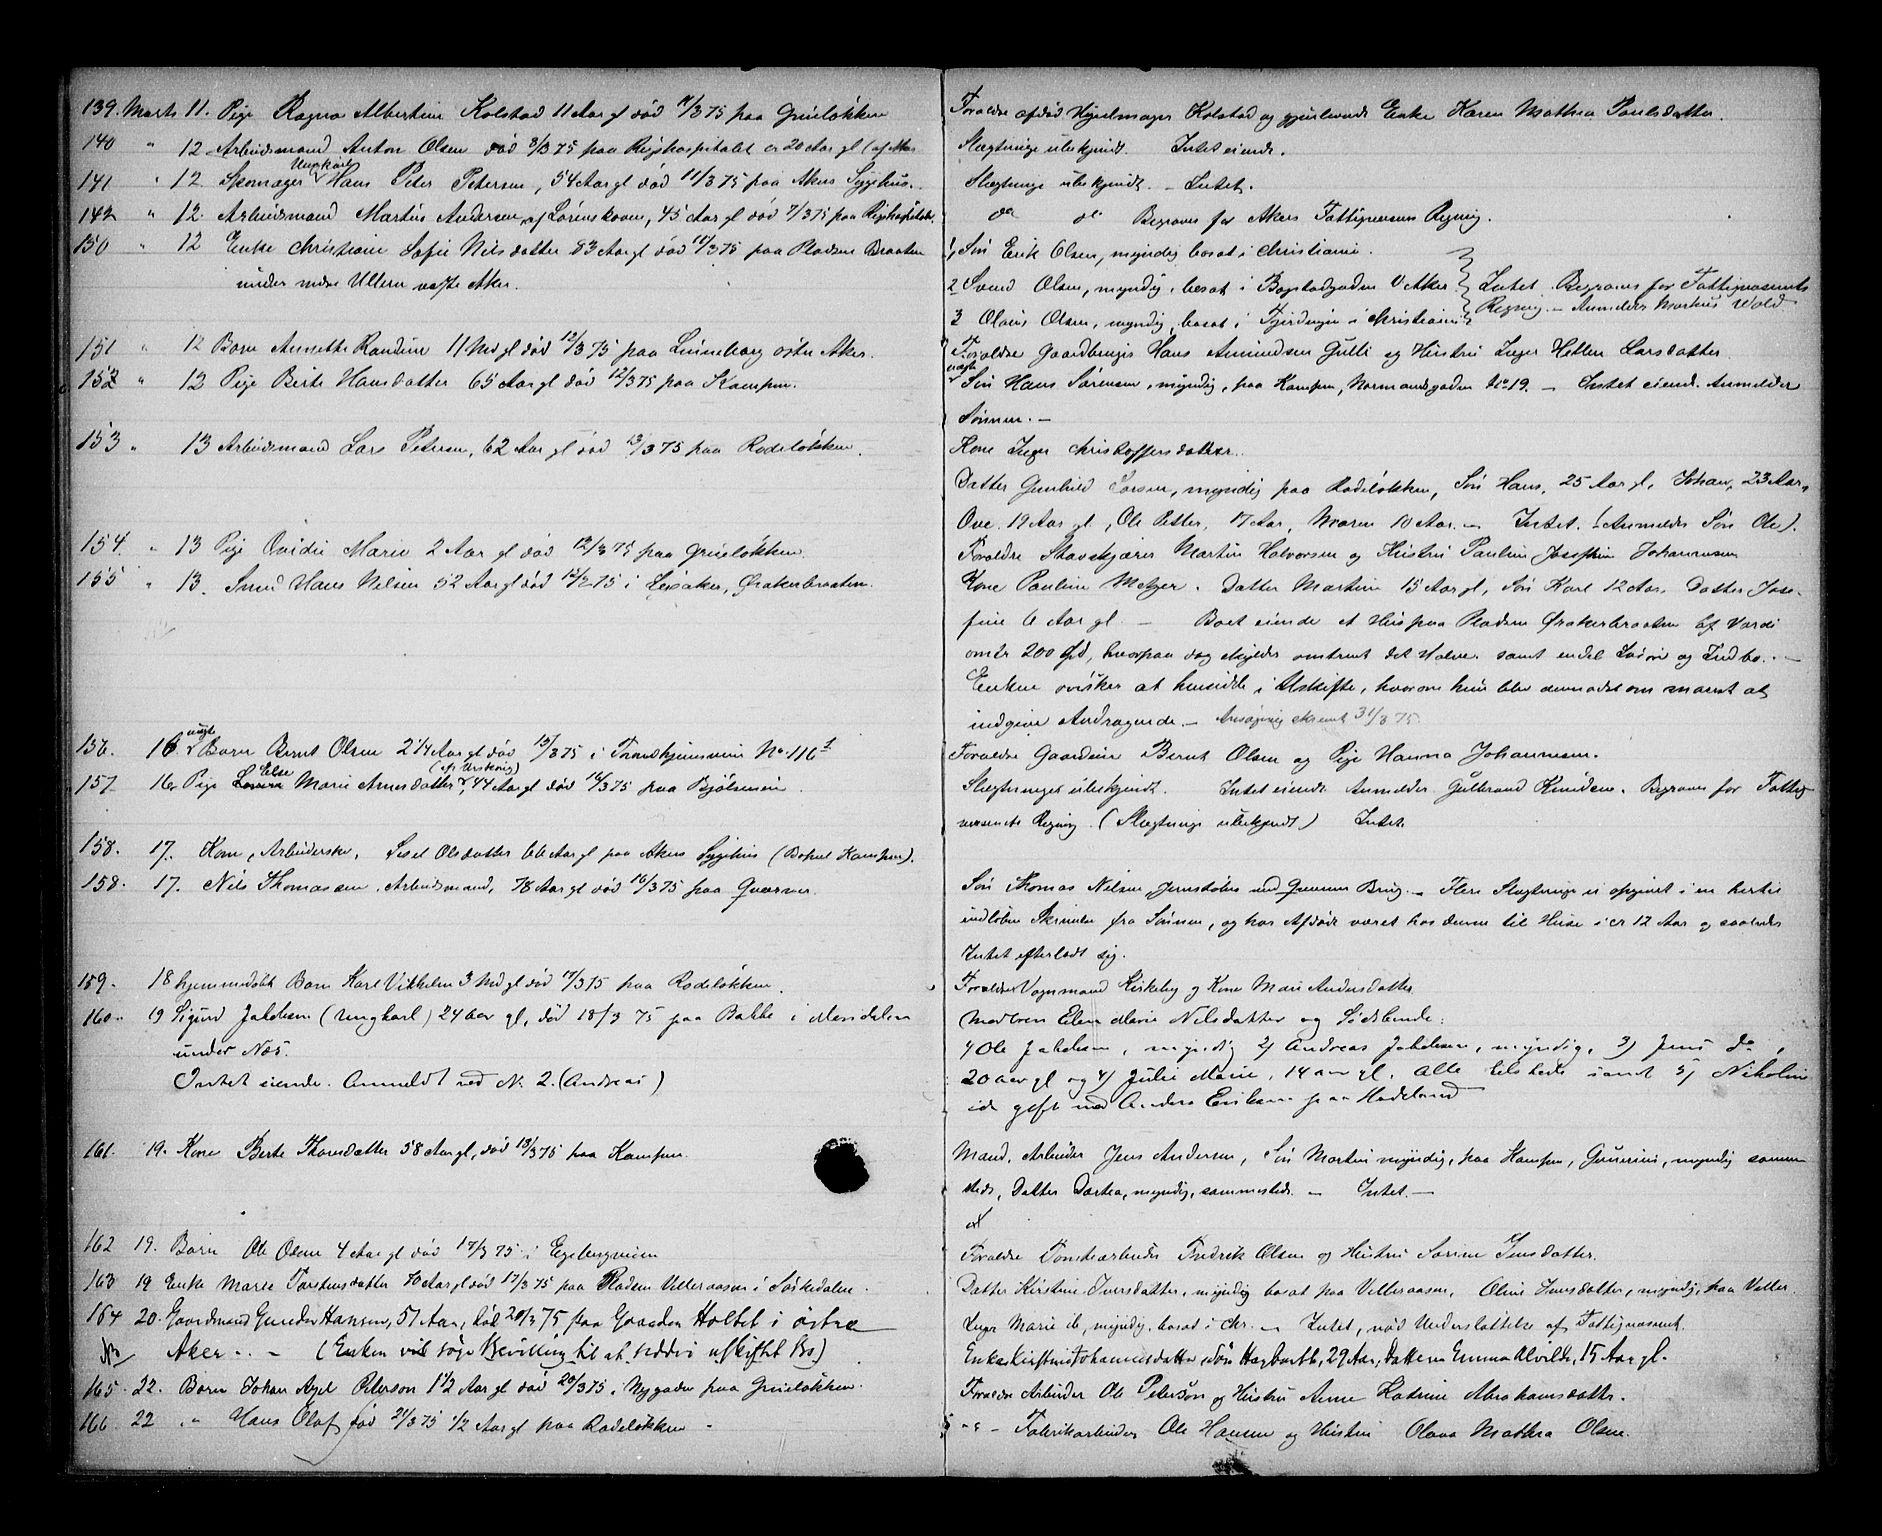 139. Marts 11. Pige Ragna Albertine Kolstad 11 Aar gl død 11/3 75 paa Grüneløkken
Forældre afdød Hjulmager Kolstad og gjenlevende Enke Karen Mathea Paulsdatter.
140 " 12 Arbeidsmand Anton Olsen død 3/3 75 paa Rigshospitalet er 20 Aar gl (af Aker
Slægtninge ubekjendt. Intet eiende.
141 " 12 Skomager Ungkarl Hans Peter Petersen, 54 Aar gl død 11/3 75 paa Akers Sygehus.
Slægtninge ubekjendt. - Intet.
142 " 12. Arbeidsmand Martin Andersen, af Lørenskoven, 45 Aar gl død 7/3 75 paa Rigshospitalet.
do do Begraves for Akers Fattigvæsens Regning.
150 " 12 Enke Christiane Sofie Nilsdatter 83 Aar gl død 10/3 75 paa Pladsen Braaten
under nedre Ullern vestre Aker.
1, Søn Erik Olsen, myndig bosat i Christiania.
2 Svend Olsen, myndig, bosat i Bogstadgaden V Aker
3 Olaus Olsen, myndig, bosat i Fjerdingen i Christiania
Intet. Begraves for Fattigvæsenets
Regning. - Anmelder Martius Wold
151 " 12 Barn Annette Randine 11 Md gl død 12/3 75 paa Lønneborg østre Aker.
Forældre Gaardbruger Hans Amundsen Gulli og Hustru Inger Helene Larsdatter.
152 " 12 Pige Berte Hansdatter 65 Aar gl død 12/3 75 paa Kampen.
uægte Søn Hans Sørensen, myndig, paa Kampen, Normandsgaden No 19. - Intet eiende. Anmelder
Sønnen. -
153 " 13 Arbeidsmand Lars Petersen, 62 Aar gl død 13/3 75 paa Rodeløkken.
Kone Inger Christoffersdatter.
Datter Gunhild Larsen, myndig paa Rodeløkken, Søn Hans, 25 Aar gl, Johan, 23 Aar,
Ove 19 Aar gl, Ole Petter, 17 Aar, Maren 10 Aar. - Intet. (Anmelder Søn Ole).
154. " 13 Pige Ovidie Marie 2 Aar gl død 12/3 75 paa Grüneløkken.
Forældre Martin Halvorsen og Hustru Pauline Josephine Johannesen
155 " 13. Smed Hans Nilsen 52 Aar gl død 12/3 75 i Lysaker, Ørakerbraaten.
Kone Pauline Metzer. Datter Martine 15 Aar gl, Søn Karl 12 Aar, Datter Jose-
fine 6 Aar gl. - Boet eiende et Hus paa Pladsen Ørakerbraaten af Værdi
omtr 200 Spd, hvorpaa dog skyldes omtrent det Halve. samt endel Løsøre og Indbo. -
Enken ønsker at hensidde i Uskifte, hvorom hun blev underrettet om snarest at
indgive Andragende. - Ansøgning skrevet 31/3 75.
156. 16. uægte Barn Bernt Olsen 2 1/4 Aar gl død 15/3 75 i Trondhjemsveien No 116
Forældre Gaardeier Bernt Olsen og Pige Hanna Johannesen.
157 16 Pige Else Marie Arnesdatter (af Urskoug), 44 Aar gl død 14/3 75 paa Bjølsenveien
Slægtninger ubekjendt. Intet eiende Anmelder Gulbrand Knudsen. Begraves for Fattig-
væsenets Regning. (Slægtninge ubekjendt) Intet.
158. 17. Kone, Arbeiderske, Sissel Olsdatter 66 Aar gl paa Akers Sygehus (Bopæl Kampen).
158. 17. Nils Thomassen, Arbeidsmand, 78 Aar gl død 16/3 75 paa Qværner
Søn Thomas Nilsen, Jernstøber ved Qværner Brug. - Flere Slægtninge ei opgivet i en hertil
indløben Skrivelse fra Sønnen, og har Afdøde været hos denne til Huse i cr 12 Aar og saaledes
Intet efterladt sig.
159. 18 hjemmedøbt Barn Karl Vilhelm 3 Md gl død 17/3 75 paa Rodeløkken.
Forældre Vognmand Kirkeby og Kone Mari Andersdatter
160. 19 Sigurd Jakobsen (Ungkarl) 24 aar gl, død 18/3 75 paa Bakke i Mæridalen
under Næs.
Intet eiende. Anmeldt ved N. 2. (Andreas)
Moderen Elen Marie Nilsdatter og Sødskende:
1) Ole Jakobsen, myndig 2) Andreas Jakobsen, myndig, 3) Jens do,
20 aar gl og 4) Julie Marie, 14 aar gl. Alle tilstede samt 5) Nikoline
id gift med Anders Eriksen paa Hadeland
161. 19. Kone Berte Thorsdatter 58 Aar gl, død 18/3 75 paa Kampen.
Mand, Arbeider Jens Andersen, Søn Martin myndig, paa Kampen, Gunerius, myndig sammen-
steds, Datter Dorthea, myndig, sammesteds - Intet. -
162 19. Barn Ole Olsen 4 Aar gl død 17/3 75 i Egebergveien
Forældre Tomtearbeider Fredrik Olsen og Hustru Sørine Jensdatter.
163 19 Enke Marie Torstensdatter 70 Aar gl død 17/3 75 paa Pladsen Velleraasen i Sørkedalen.
Datter Kirstine Iversdatter, myndig bosat paa Velleraasen, Oline Iversdatter, myndig, paa Veller
Inger Marie ib, myndig, bosat i Chr. - Intet, nød Understøttelse af Fattigvæsenet.
164 20. Gaardmand Gunder Hansen, 57 Aar, død 20/3 75 paa Gaarden Holtet i østre
Aker. - - (Enken vil søge Bevilling til at sidde i uskiftet Bo)
Enke Kirstine Johannesdatter, Søn Hagbarth, 29 Aar, Datteren Emma Alvilde, 15 Aar gl.
165. 22. Barn Johan Axel Peterson 1 1/2 Aar gl død 20/3 75 i Nygaden paa Grüneløkken.
Forældre Arbeider Ole Peterson og Hustru Anne Katrine Abrahamsdatter.
166. 22 " Hans Olaf død 21/3 75 1/2 Aar gl paa Rodeløkken -
" - Fabrikarbeider Ole Hansen og Hustru Olava Mathea Olsen.